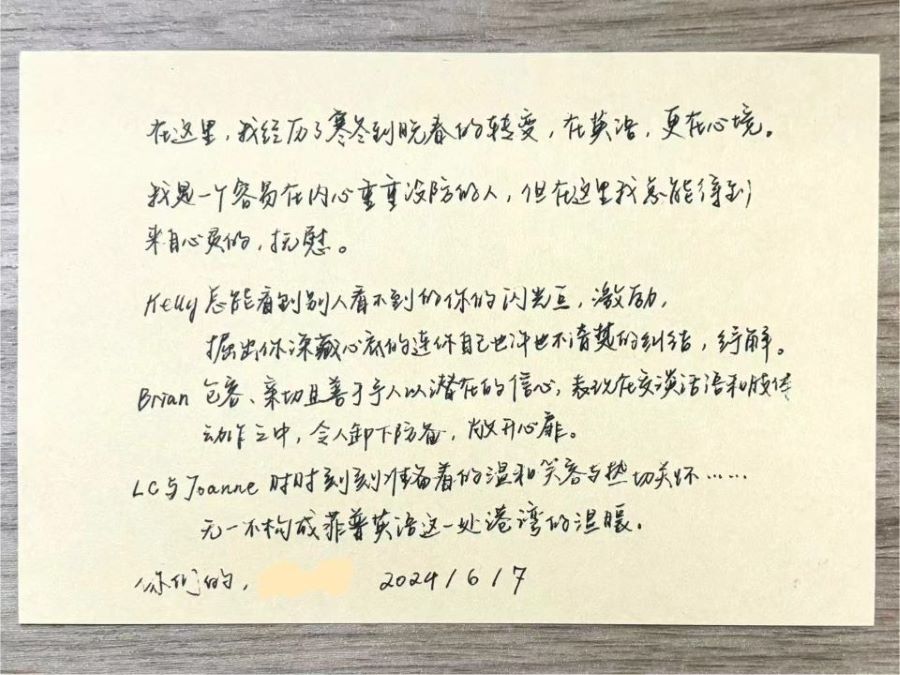 在这里，我经历了寒冬到晚春的转变，在英语，更在心境。
我是一个容易在内心重重设防的人，但在这里我总能得到
来自心灵的，抚慰。
Kelly 总能看到别人看不到的你的闪光点，激励，
掘出你深藏心底的连你自己也许也不清楚的纠结，纾解。
Brian 包容、亲切且善于予人以潜在的信心，表现在交谈话语和肢体
动作之中，令人卸下防备，敞开心扉。
LC与Joanne 时时刻刻准备着的温和笑容与热切关怀……
无一不构成菲普英语这一处港湾的温暖。
你们的， 2024/6/7